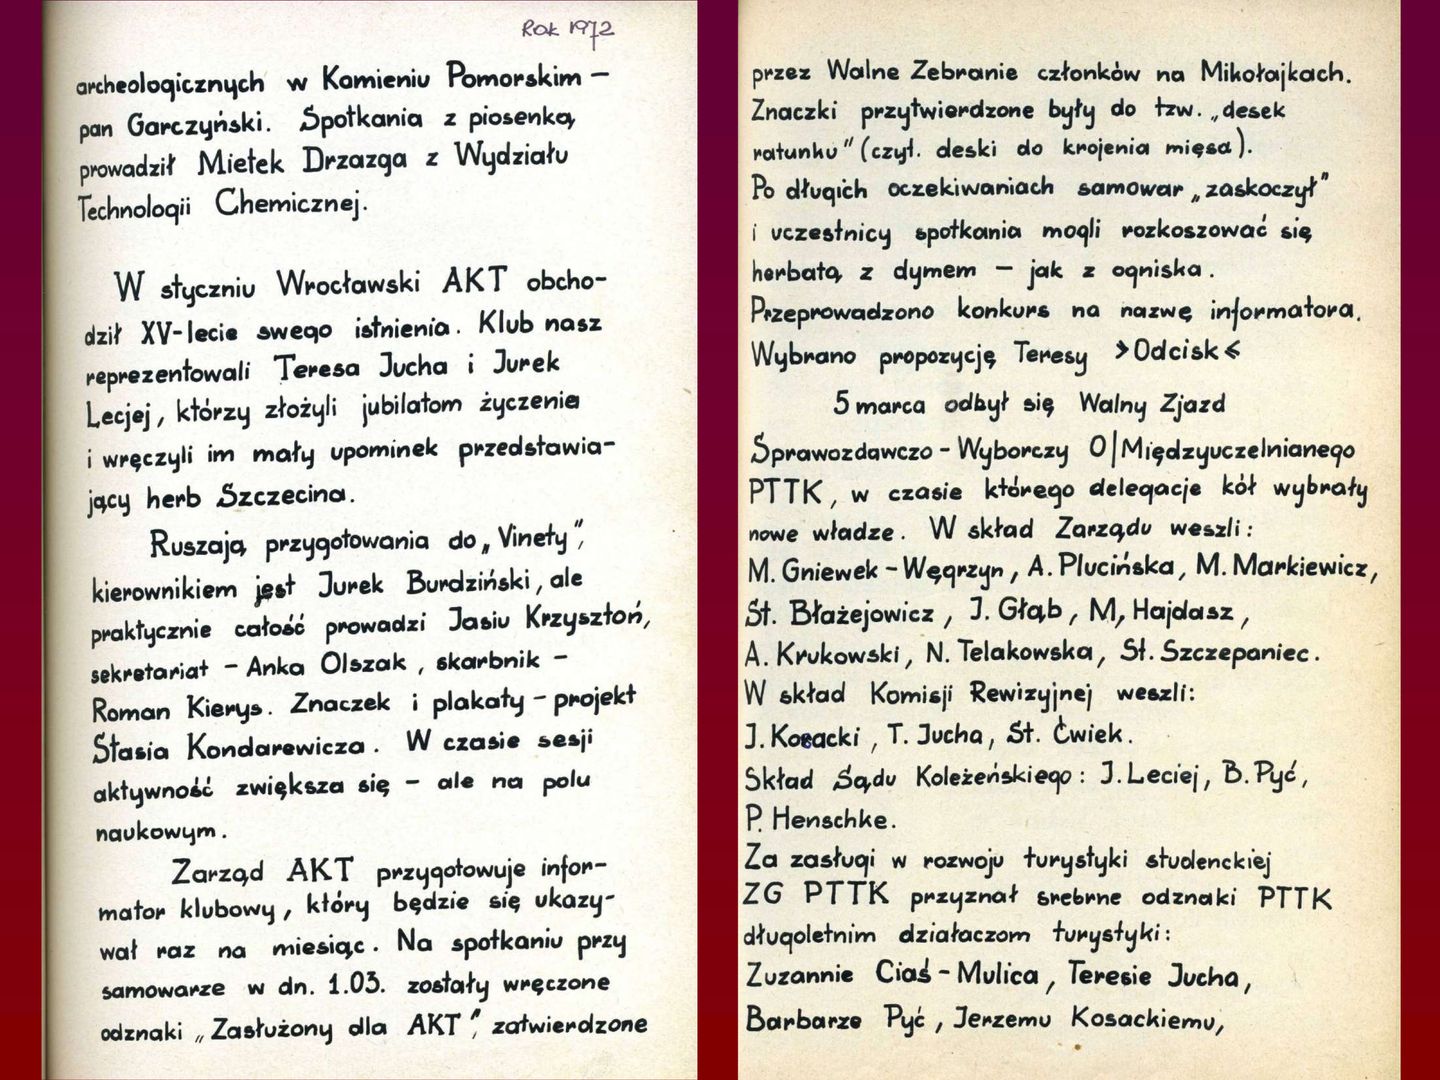 Rok 1972
archeologicznych w Kamieniu Pomorskim –
pan Garczyński. Spotkania z piosenką
prowadził Mietek Drzazga z Wydziału
Technologii Chemicznej.
W styczniu Wrocławski AKT obcho-
dził XV-lecie swego istnienia. Klub nasz
reprezentowali Teresa Jucha i Jurek
Lecjej, którzy złożyli jubilatom życzenia
i wręczyli im mały upominek przedstawia-
jący herb Szczecina.
Ruszają przygotowania do „Vinety",
kierownikiem jest Jurek Burdziński, ale
praktycznie całość prowadzi Jasiu Krzysztoń,
sekretariat – Anka Olszak, skarbnik –
Roman Kierys. Znaczek i plakaty – projekt
Stasia Kondarewicza. W czasie sesji
aktywność zwiększa się – ale na polu
naukowym.
Zarząd AKT przygotowuje infor-
mator klubowy, który będzie się ukazy-
wał raz na miesiąc. Na spotkaniu przy
samowarze w dn. 1.03. zostały wręczone
odznaki „Zasłużony dla AKT", zatwierdzone
przez Walne Zebranie członków na Mikołajkach.
Znaczki przytwierdzone były do tzw. „desek
ratunku" (czyt. deski do krojenia mięsa).
Po długich oczekiwaniach samowar „zaskoczył"
i uczestnicy spotkania mogli rozkoszować się
herbatą z dymem – jak z ogniska.
Przeprowadzono konkurs na nazwę informatora.
Wybrano propozycję Teresy >Odcisk<
5 marca odbył się Walny Zjazd
Sprawozdawczo-Wyborczy O/Międzyuczelnianego
PTTK, w czasie którego delegacje kół wybrały
nowe władze. W skład Zarządu weszli:
M. Gniewek-Węgrzyn, A. Plucińska, M. Markiewicz,
St. Błażejowicz, J. Głąb, M, Hajdasz,
A. Krukowski, N. Telakowska, St. Szczepaniec.
W skład Komisji Rewizyjnej weszli:
J. Kosacki, T. Jucha, St. Ćwiek.
Skład Sądu Koleżeńskiego: J. Leciej, B. Pyć,
P. Henschke.
Za zasługi w rozwoju turystyki studenckiej
ZG PTTK przyznał srebrne odznaki PTTK
długoletnim działaczom turystyki:
Zuzannie Ciaś-Mulica, Teresie Jucha,
Barbarze Pyć, Jerzemu Kosackiemu,